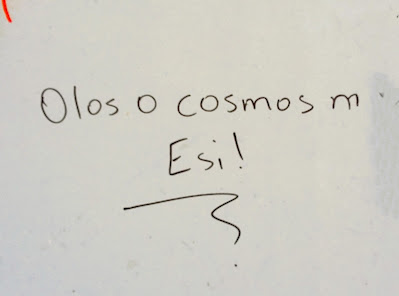 Olos o cosmos m
Esi!